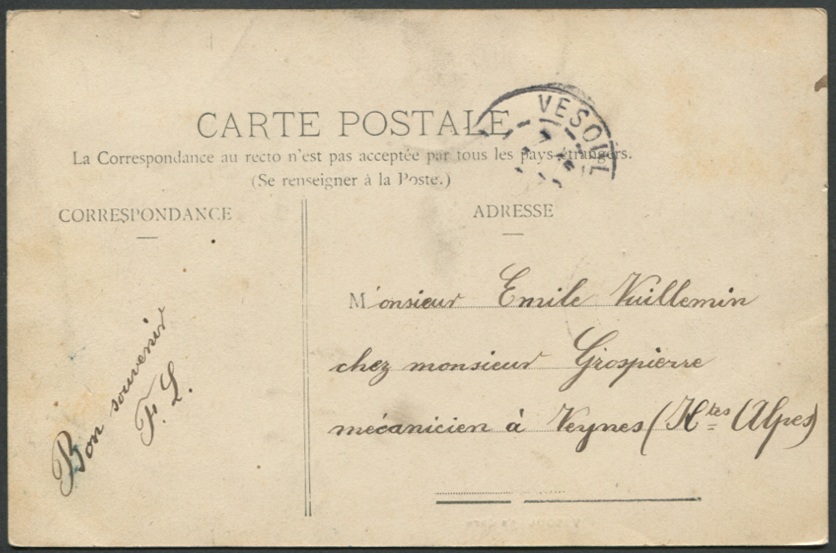 CARTE POSTALE
VESOUL
La Correspondance au recto n'est pas acceptée par tous les pays étrangers.
(Se renseigner à la Poste.)
CORRESPONDANCE
ADRESSE
Monsieur Emile Vuillemin
chez monsieur Grospierre
mécanicien à Veynes (Htes Alpes)
Bon souvenir
F. L.